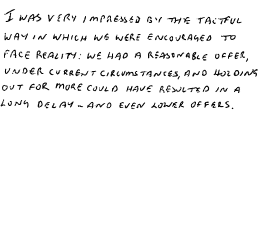 I WAS VERY IMPRESSED BY THE TACTFUL
WAY IN WHICH WE WERE ENCOURAGED TO
FACE REALITY: WE HAD A REASONABLE OFFER,
UNDER CURRENT CIRCUMSTANCES, AND HOLDING
OUT FOR MORE COULD HAVE RESULTED IN A
LONG DELAY - AND EVEN LOWER OFFERS.